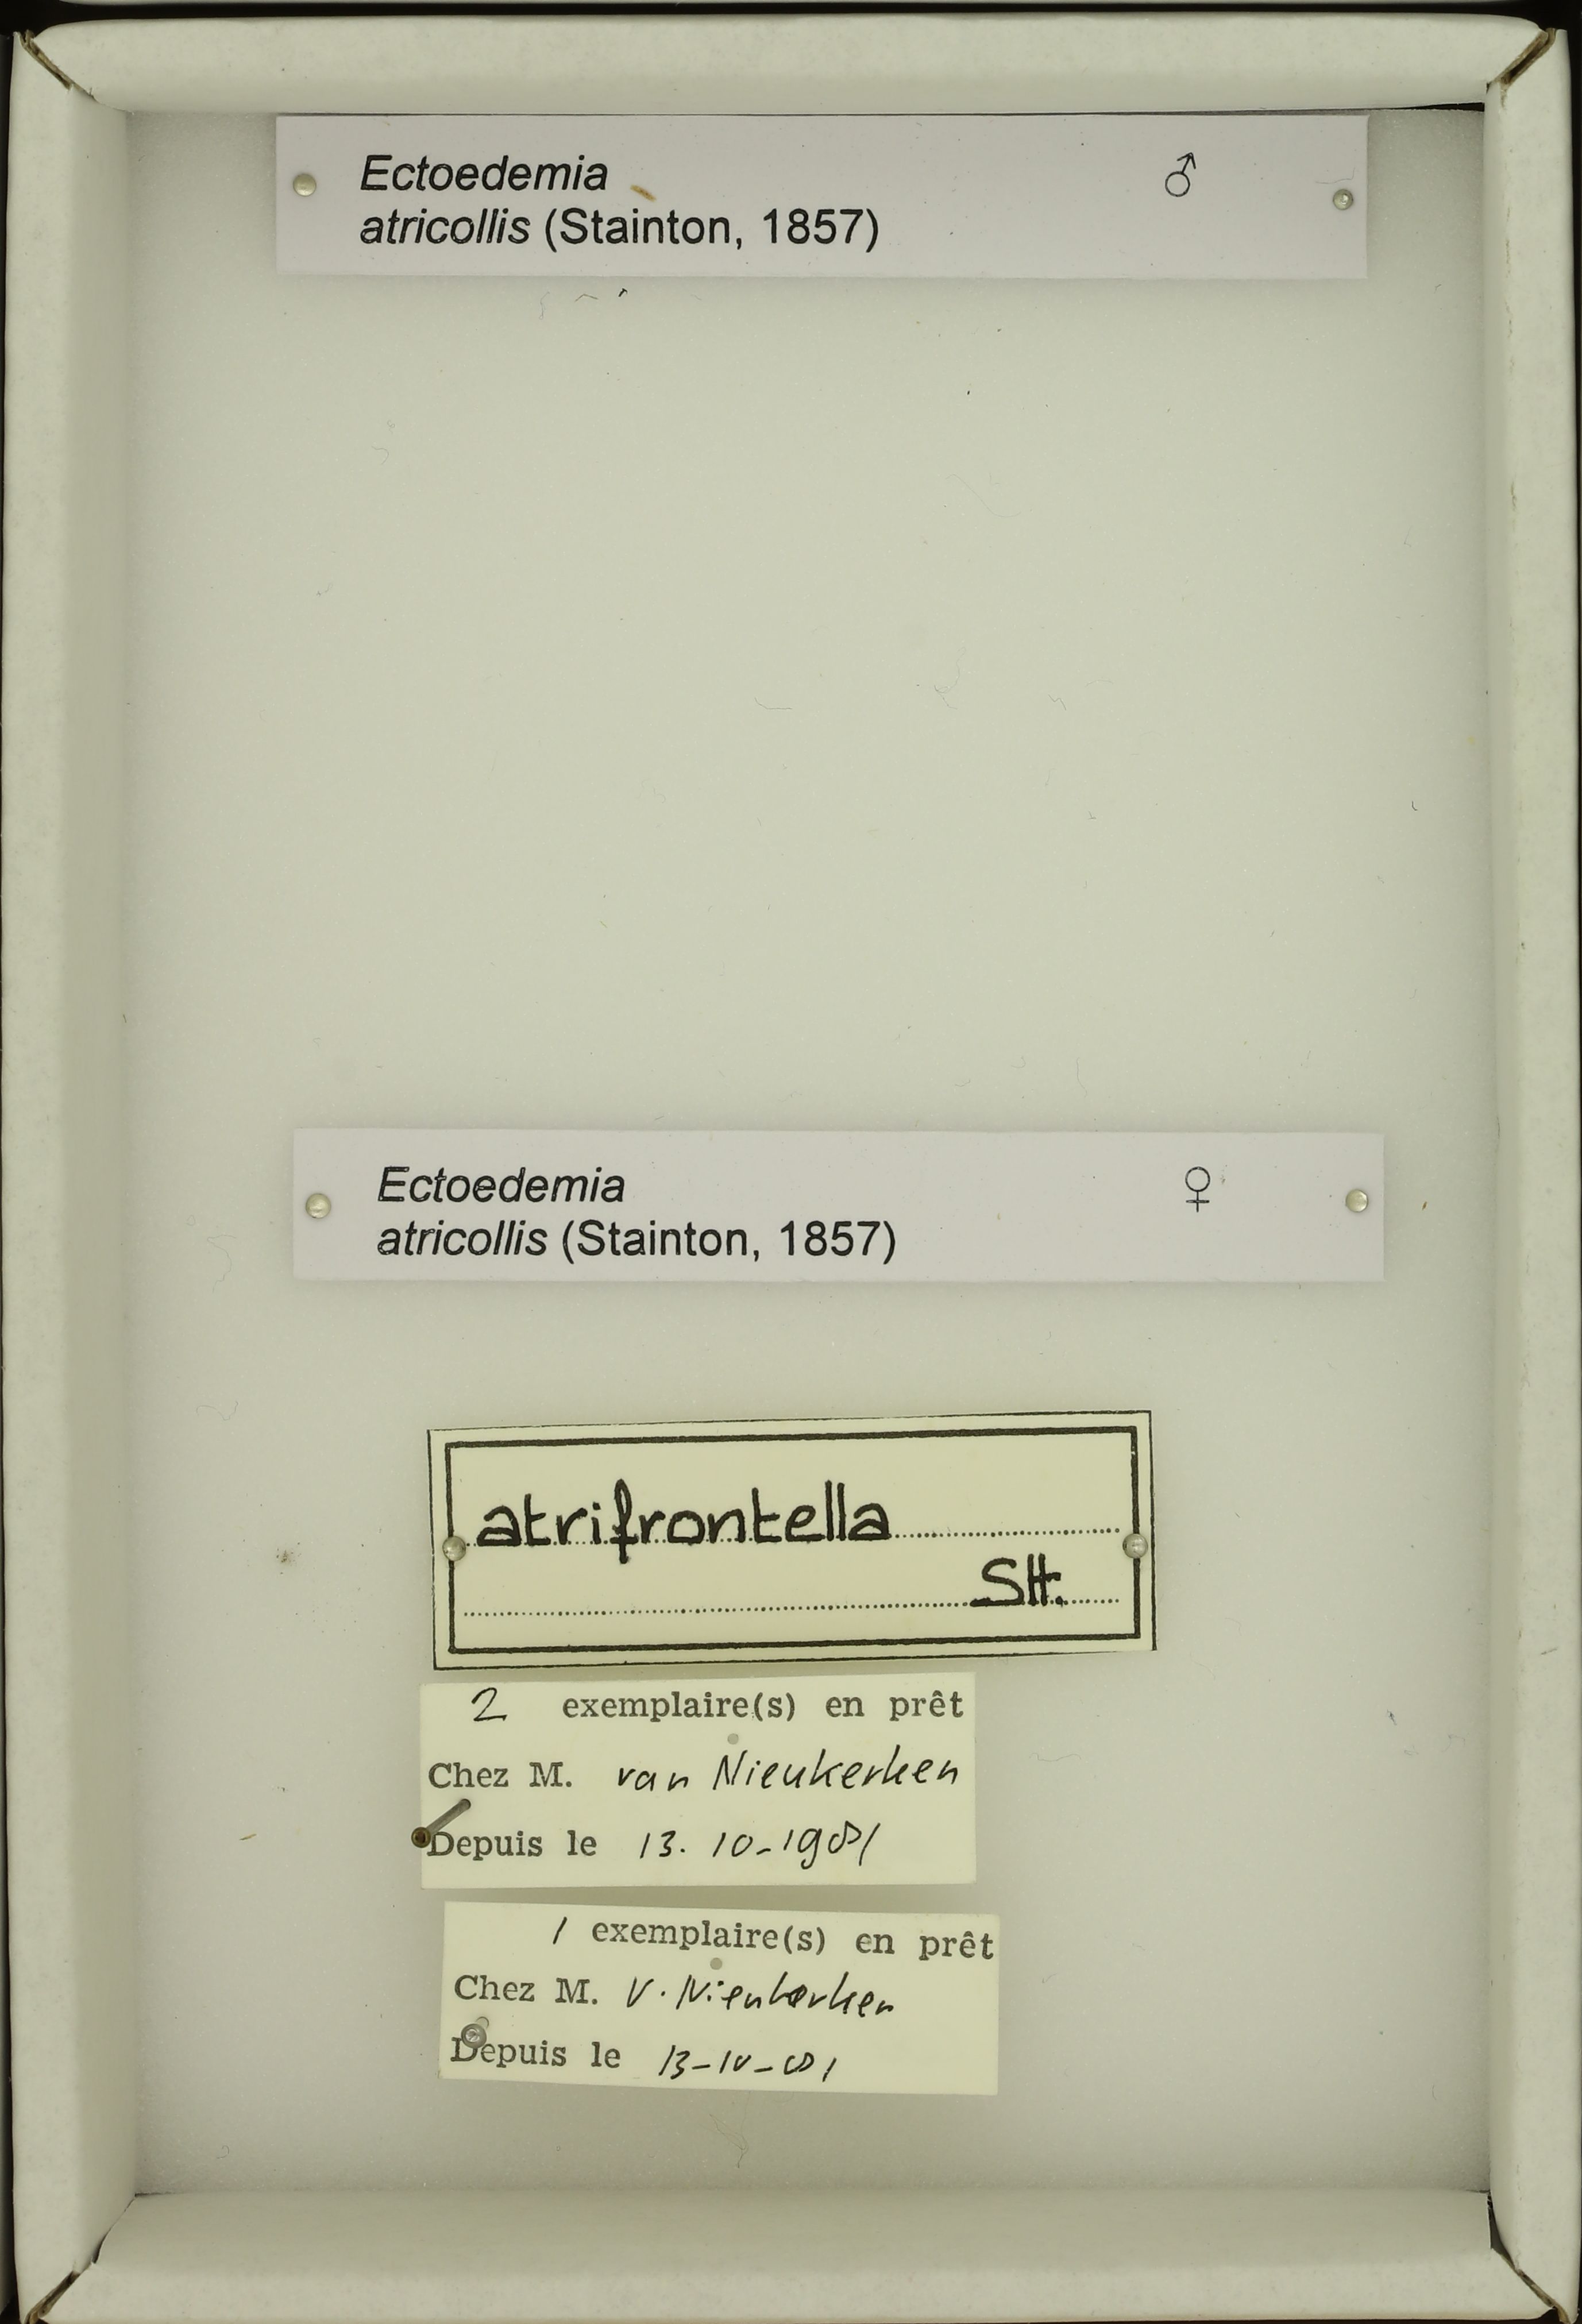 Ectoedemia ♂
atricollis (Stainton, 1857)
Ectoedemia ♀
atricollis (Stainton, 1857)
atrifrontella
Stt.
2 exemplaire(s) en prêt
Chez M. van Nieukerken
Depuis le 13.10-1981
1 exemplaire(s) en prêt
Chez M. V. Nieukerken
Depuis le 13-10-81